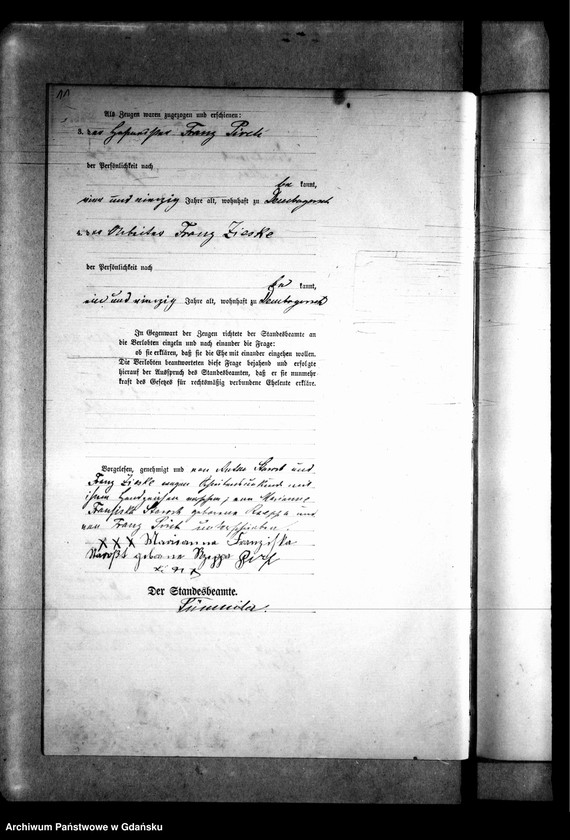 Als Zeugen waren zugezogen und erschienen:
3. der Franz Pirch
der Persönlichkeit nach
be kannt,
vier und vierzig Jahre alt, wohnhaft zu Dembogorsch
4. der Arbeiter Franz Zieske
der Persönlichkeit nach
be kannt,
ein und vierzig Jahre alt, wohnhaft zu Dembogorsch
In Gegenwart der Zeugen richtete der Standesbeamte an
die Verlobten einzeln und nach einander die Frage:
ob sie erklären, daß sie die Ehe mit einander eingehen wollen.
Die Verlobten beantworteten diese Frage bejahend und erfolgte
hierauf der Ausspruch des Standesbeamten, daß er sie nunmehr
kraft des Gesetzes für rechtsmäßig verbundene Eheleute erkläre.
Vorgelesen, genehmigt und von und
Franz Zieske wegen mit
ihrem Handzeichen versehen, von Marianna
Franziska geborene und
von Franz Pirch unterschrieben.
XXX Marianna Franziska
geborene
Der Standesbeamte.
Archiwum Państwowe w Gdańsku